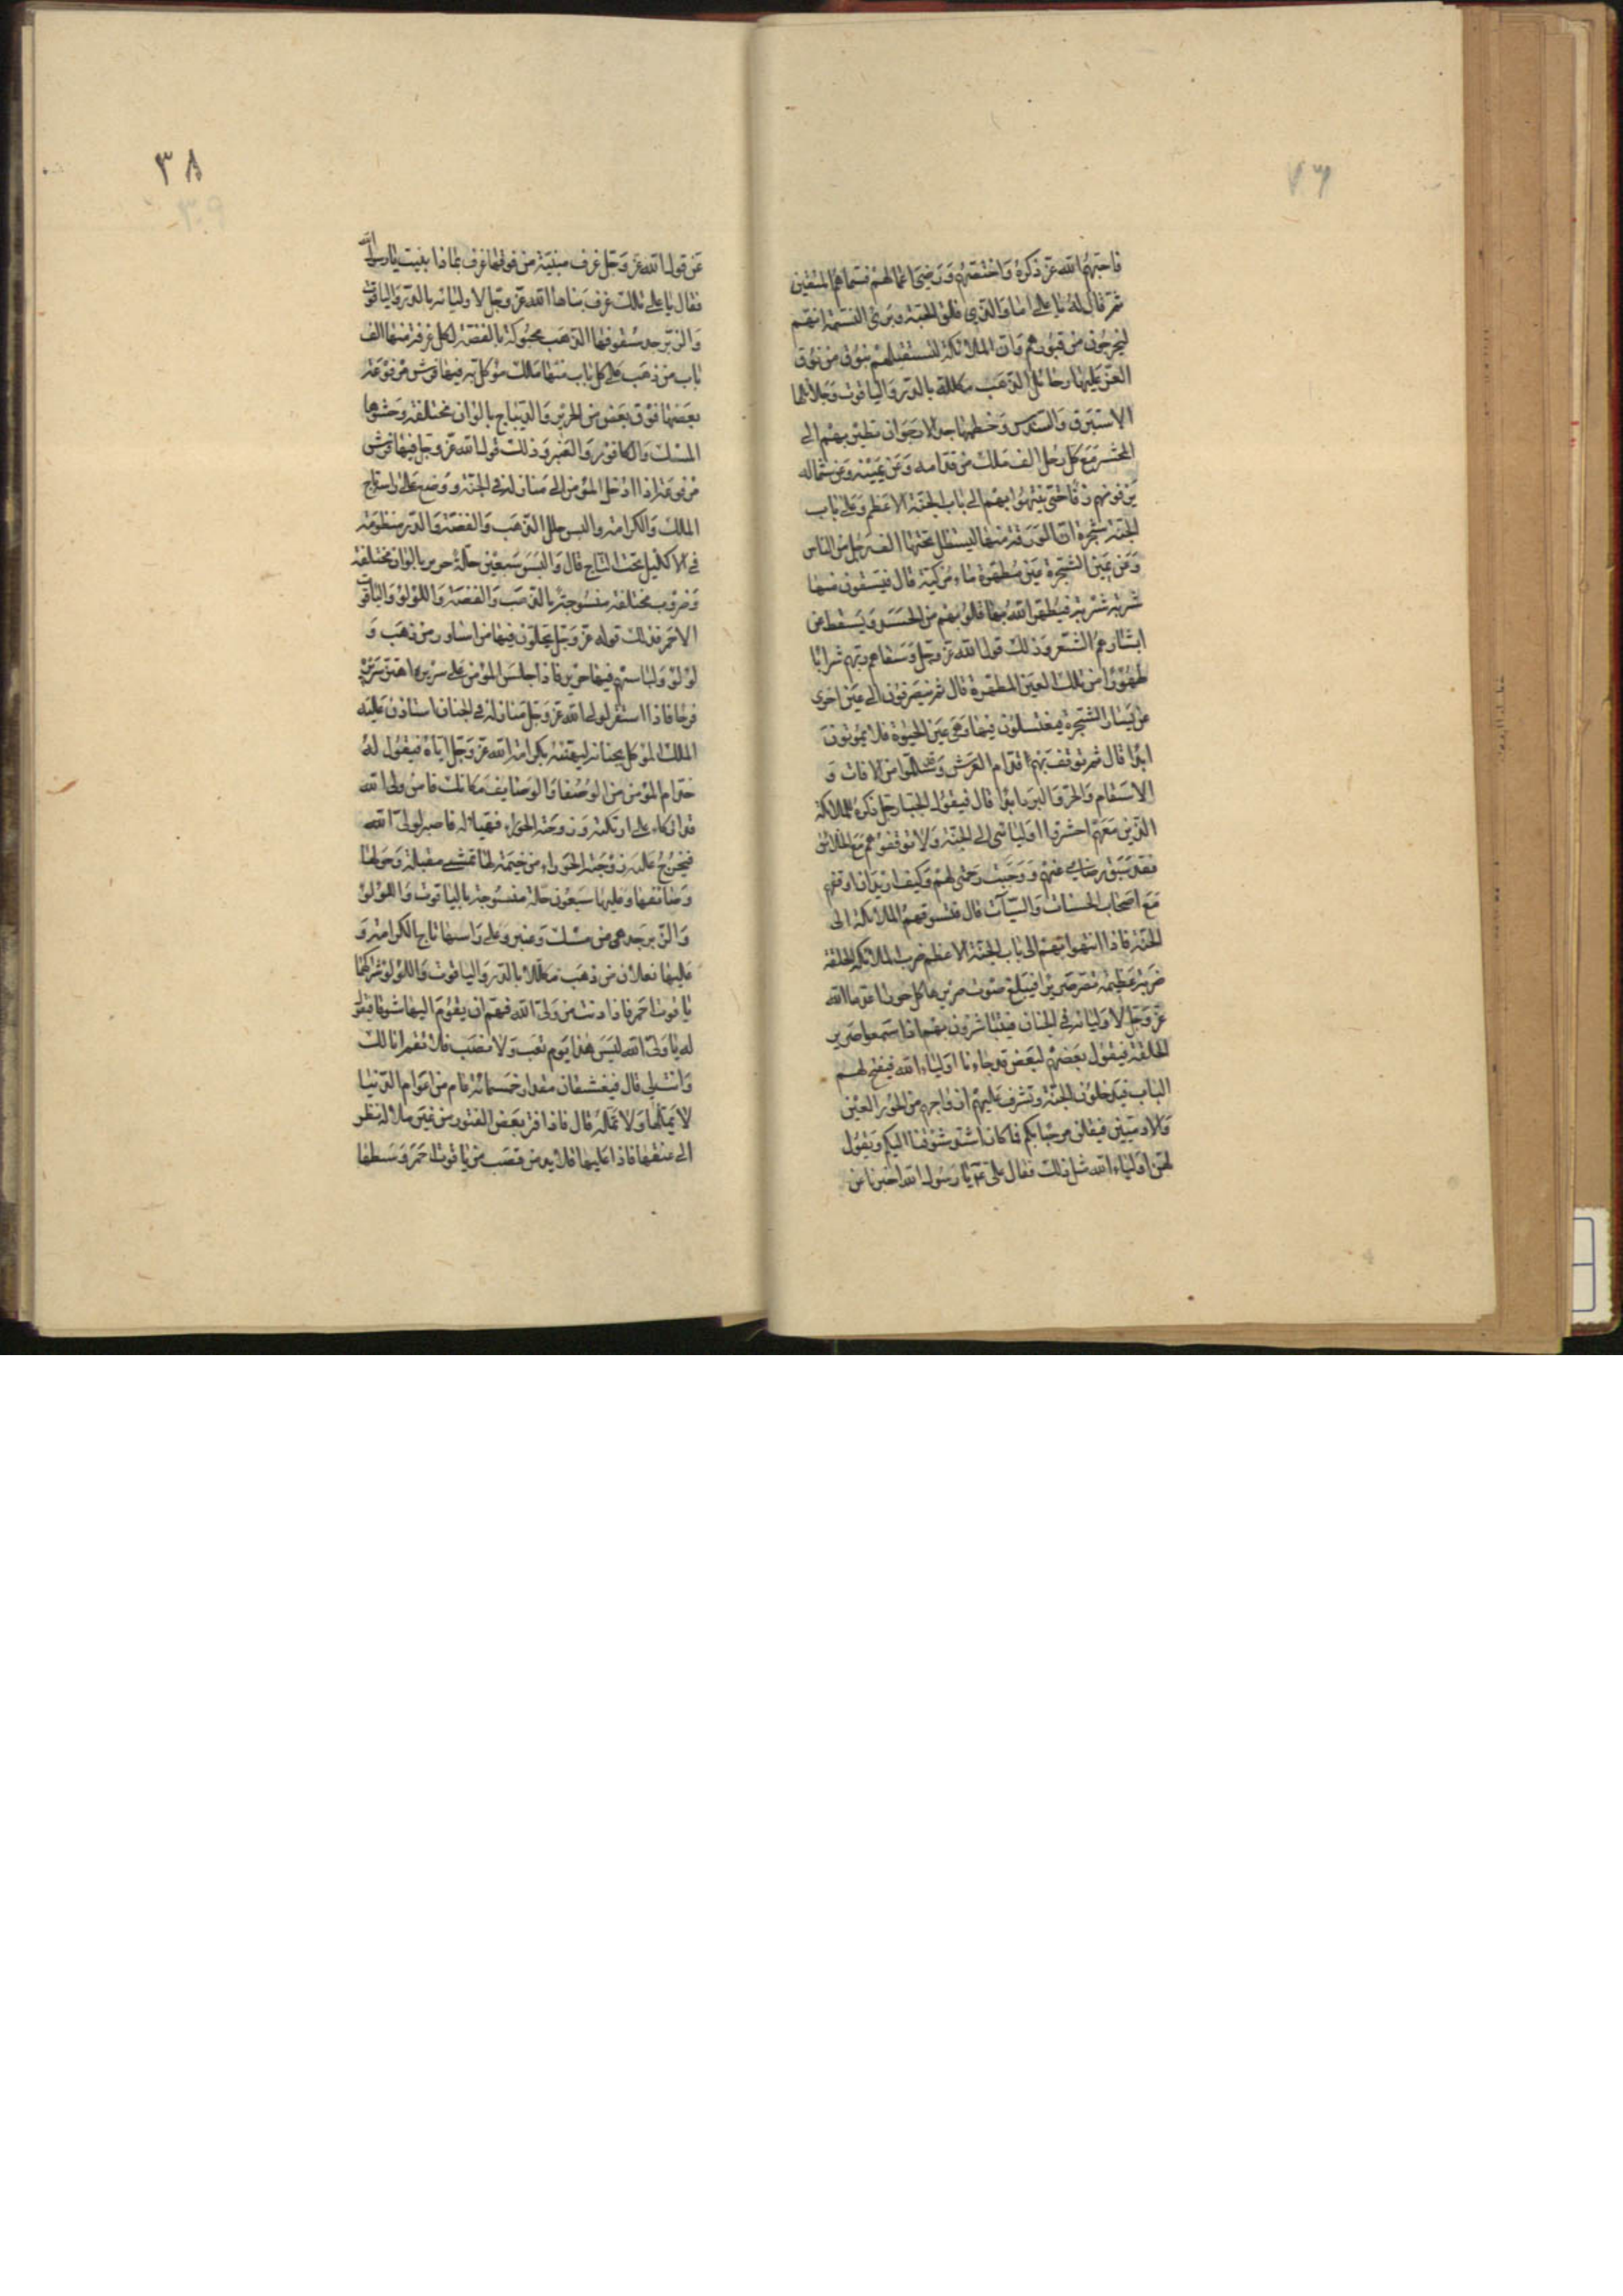 فاحبهم الله عز ذكره واختصهم ورضي اعمالهم فسماهم المتقين
ثم قال له يا علي اما والذي فلق الحبة وبرئ النسمة انهم
ليخرجون من قبورهم وان الملائكة لتستقبلهم بنوق من نوق
العز عليها رحائل الذهب مكللة بالدر والياقوت وجلائلها
الاستبرق والسندس وخطمها جدل الارجوان تطير بهم الى
المحشر مع كل رجل الف ملك من قدامه وعن يمينه وعن شماله
يزفونهم زفا حتى ينتهوا بهم الى باب الجنة الاعظم وعلى باب
الجنة شجرة ان الورقة منها ليستظل تحتها الف رجل من الناس
وعن يمين الشجرة عين مطهرة ماء مزكية قال فيسقون منها
شربة شربة فيطهر الله بها قلوبهم من الحسد ويسقط من
ابشارهم الشعر وذلك قول الله عز وجل وسقاهم ربهم شرابا
طهورا من تلك العين المطهرة قال ثم ينصرفون الى عين اخرى
عن يسار الشجرة فيغتسلون فيها وهي عين الحيوة فلا يموتون
ابدا قال ثم توقف بهم قدام العرش وقد سلموا من الافات و
الاسقام والحر والبرد ابدا قال فيقول الجبار جل ذكره للملائكة
الذين معهم احشروا اوليائي الى الجنة ولا توقفوهم مع الخلائق
فقد سبق رضائي عنهم ووجبت رحمتي لهم وكيف اريد ان اوقفهم
مع اصحاب الحسنات والسيآت قال فتسوقهم الملائكة الى
الجنة فاذا انتهوا بهم الى باب الجنة الاعظم ضرب الملائكة الحلقة
ضربة عظيمة تصر صريرا فيبلغ صوت صريرها كل حوراء اعدها الله
عز وجل لاوليائه في الجنان فيتباشرون بهم اذا سمعوا صرير
الحلقة فيقول بعضهم لبعض قد جاءنا اولياء الله فيفتح لهم
الباب فيدخلون الجنة وتشرف عليهم ازواجهم من الحور العين
والادميين فيقلن مرحبا بكم فما كان اشد شوقنا اليكم ويقول
لهن اولياء الله مثل ذلك فقال علي ع يا رسول الله اخبرنا عن
٣٨
عن قول الله عز وجل غرف مبنية من فوقها غرف بماذا بنيت يا رسول الله
فقال يا علي تلك غرف بناها الله عز وجل لاوليائه بالدر والياقوت
والزبرجد سقوفها الذهب محبوكة بالفضة لكل غرفة منها الف
باب من ذهب على كل باب منها ملك موكل به فيها فرش مرفوعة
بعضها فوق بعض من الحرير والديباج بالوان مختلفة وحشوها
المسك والكافور والعنبر وذلك قول الله عز وجل فيها فرش
مرفوعة اذا ادخل المؤمن الى منازله في الجنة ووضع على راسه تاج
الملك والكرامة والبس حلل الذهب والفضة والدر منظومة
في الاكليل تحت التاج قال والبس سبعين حلة حرير بالوان مختلفة
وضروب مختلفة منسوجة بالذهب والفضة واللؤلؤ والياقوت
الاحمر فذلك قوله عز وجل يحلون فيها من اساور من ذهب و
لؤلؤ ولباسهم فيها حرير فاذا جلس المؤمن على سريره اهتز سريره
فرحا فاذا استقر لولي الله عز وجل منازله في الجنان استاذن عليه
الملك الموكل بجنانه ليهنئه بكرامة الله عز وجل اياه فيقول له
خدام المؤمن من الوصفا والوصايف مكانك فان ولي الله
قد اتكاء على اريكته وزوجته الحوراء تهيا له فاصبر لولي الله
فيخرج عليه زوجته الحوراء من خيمة لها تمشي مقبلة وحولها
وصائفها وعليها سبعون حلة منسوجة بالياقوت واللؤلؤ
والزبرجد هي من مسك وعنبر وعلى راسها تاج الكرامة و
عليها نعلان من ذهب مكللة بالدر والياقوت واللؤلؤ شراكهما
ياقوت احمر فاذا دنت من ولي الله فهم ان يقوم اليها شوقا فيقول
له يا ولي الله ليس هذا يوم تعب ولا نصب فلا تقم انا لك
وانت لي قال فيعتنقان مقدار خمسمائة عام من اعوام الدنيا
لا يملها ولا تمله قال فاذا فتر بعض الفتور من غير ملالة نظر
الى عنقها فاذا عليها قلايد من قصب من ياقوت احمر وسطها